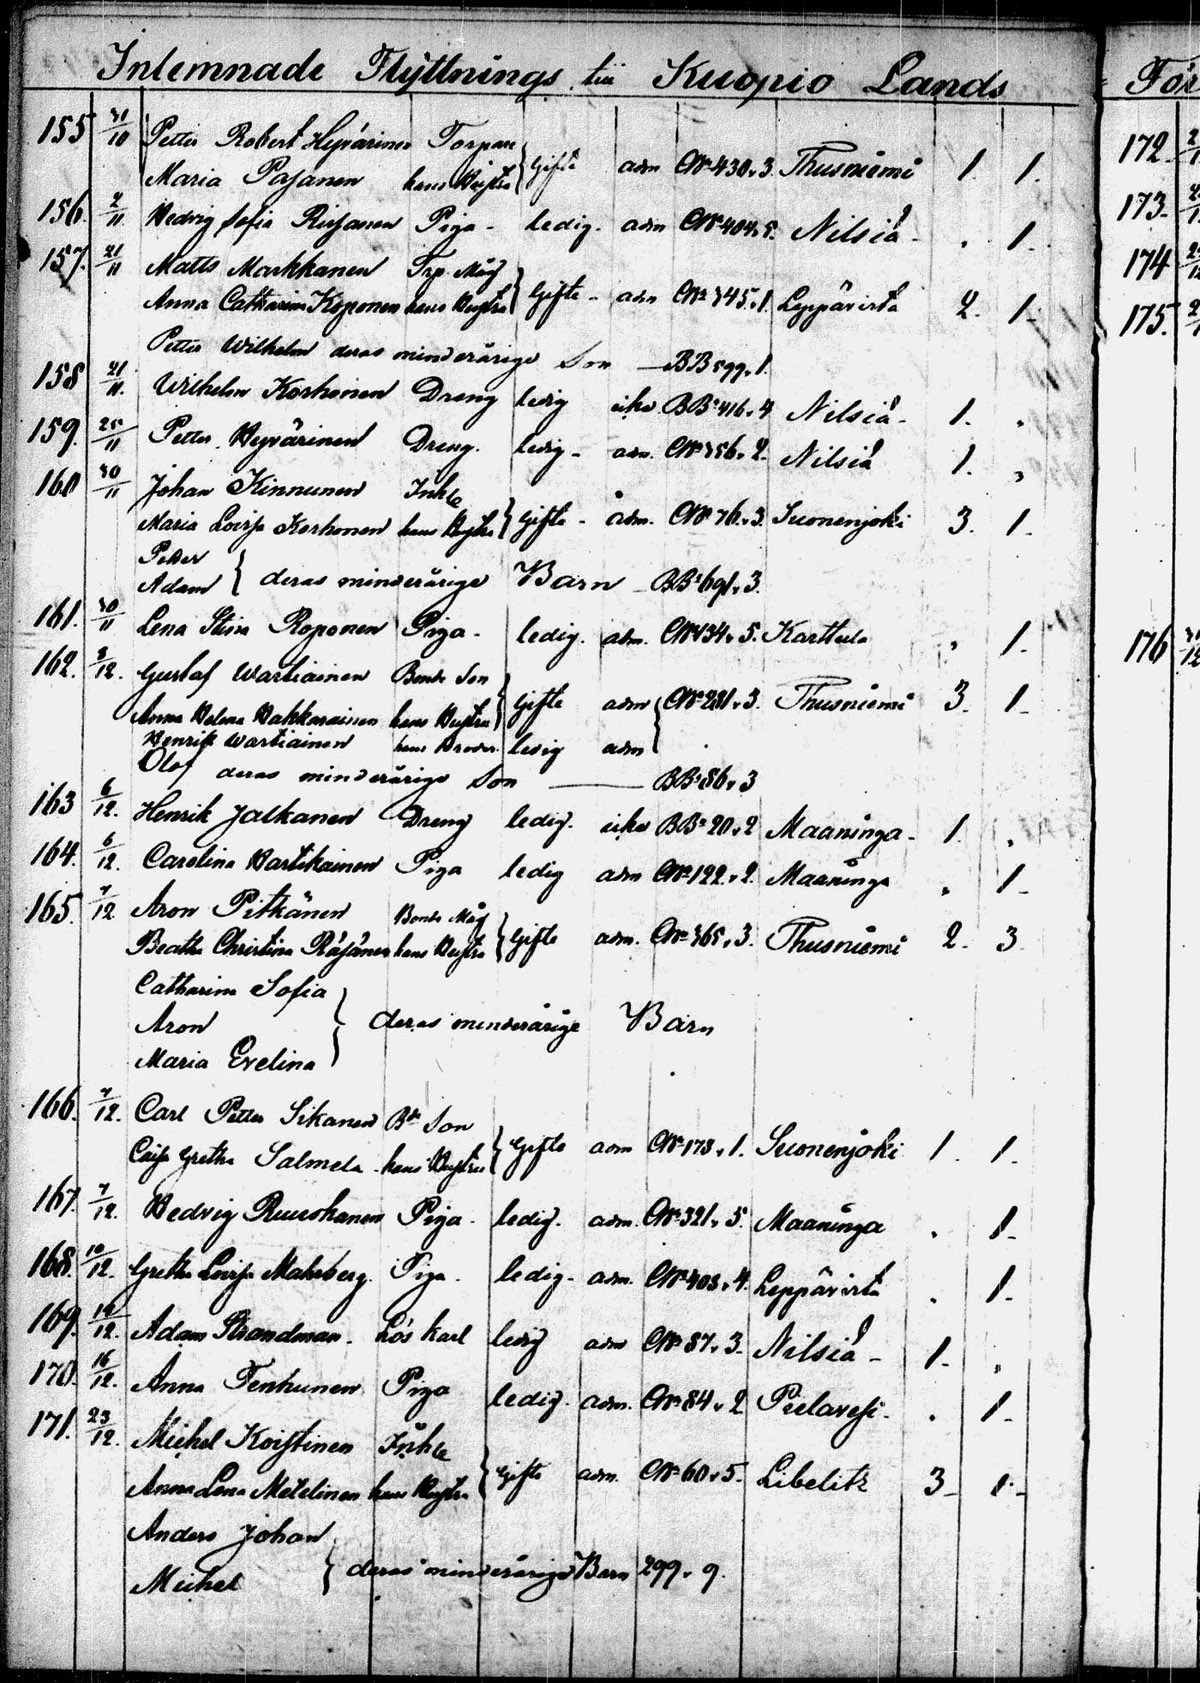 Inlemnade Flyttnings till Kuopio Lands
155 31/10 Petter Robert Hyvärinen Torpare
Maria Pasanen hans Hustru } Gifte adm CN° 430. 3. Thusniemi 1. 1.
156. 2/11 Hedvig Sofia Rissanen Piga - ledig. adm CN° 404. 5. Nilsiä - . 1.
157. 21/11 Matts Markkanen Trp. Måg
Anna Catharina Koponen hans Hustru } Gifte - adm CN° 345. 1. Leppävirta 2. 1.
Petter Wilhelm deras minderårige Son — BB 599. 1.
158 21/11. Wilhelm Korhonen Dreng ledig icke BB: 416. 4 Nilsiä - 1. .
159. 25/11 Petter Hyvärinen Dreng. ledig - adm. CN° 356. 2. Nilsiä 1. "
160 30/11 Johan Kinnunen Inh:
Maria Lovisa Korhonen hans Hustru } Gifte - adm. CN° 76. 3. Suonenjoki 3. 1.
Petter
Adam } deras minderårige Barn - BB: 691. 3.
161. 30/11 Lena Stina Roponen Piga - ledig. adm. CN° 134. 5. Karttula , 1.
162. 3/12. Gustaf Wartiainen Bonde Son
Anna Helena Hakkarainen hans Hustru } Gifte adm CN° 281. 3. Thusniemi 3. 1.
Henrik Wartiainen hans Broder ledig adm
Olof deras minderårige Son — BB: 86. 3
163 6/12. Henrik Jalkanen Dreng ledig. icke BB: 20. 2 Maaninga - 1. .
164. 6/12. Carolina Hartikainen Piga ledig adm CN° 122. 2. Maaninga . 1.
165. 7/12 Aron Pitkänen Bonde Måg
Beatha Christina Räsänen hans Hustru } Gifte adm. CN° 365. 3. Thusniemi 2. 3.
Catharina Sofia
Aron } deras minderårige Barn
Maria Evelina
166. 7/12. Carl Petter Sikanen Bde Son
Caisa Gretha Salmela hans Hustru } Gifte adm CN° 173. 1. Suonenjoki 1. 1.
167. 7/12. Hedvig Ruuskanen Piga. ledig. adm. CN° 321. 5. Maaninga . 1.
168. 10/12. Gretha Lovisa Mahrberg. Piga. ledig. adm. CN° 403. 4. Leppävirta . 1.
169. 14/12. Adam Strandman. Lös karl ledig adm CN° 87. 3. Nilsiä - 1. "
170. 16/12. Anna Tenhunen Piga ledig. adm. CN° 84. 2 Pielavesi. . 1.
171. 23/12. Michel Koistinen Inh:
Anna Lena Metelinen hans Hustru } Gifte adm. CN° 60. 5. Libelitz 3. 1.
Anders Johan
Michel } deras minderårige Barn 299. 9.
För
172
173.
174
175.
176